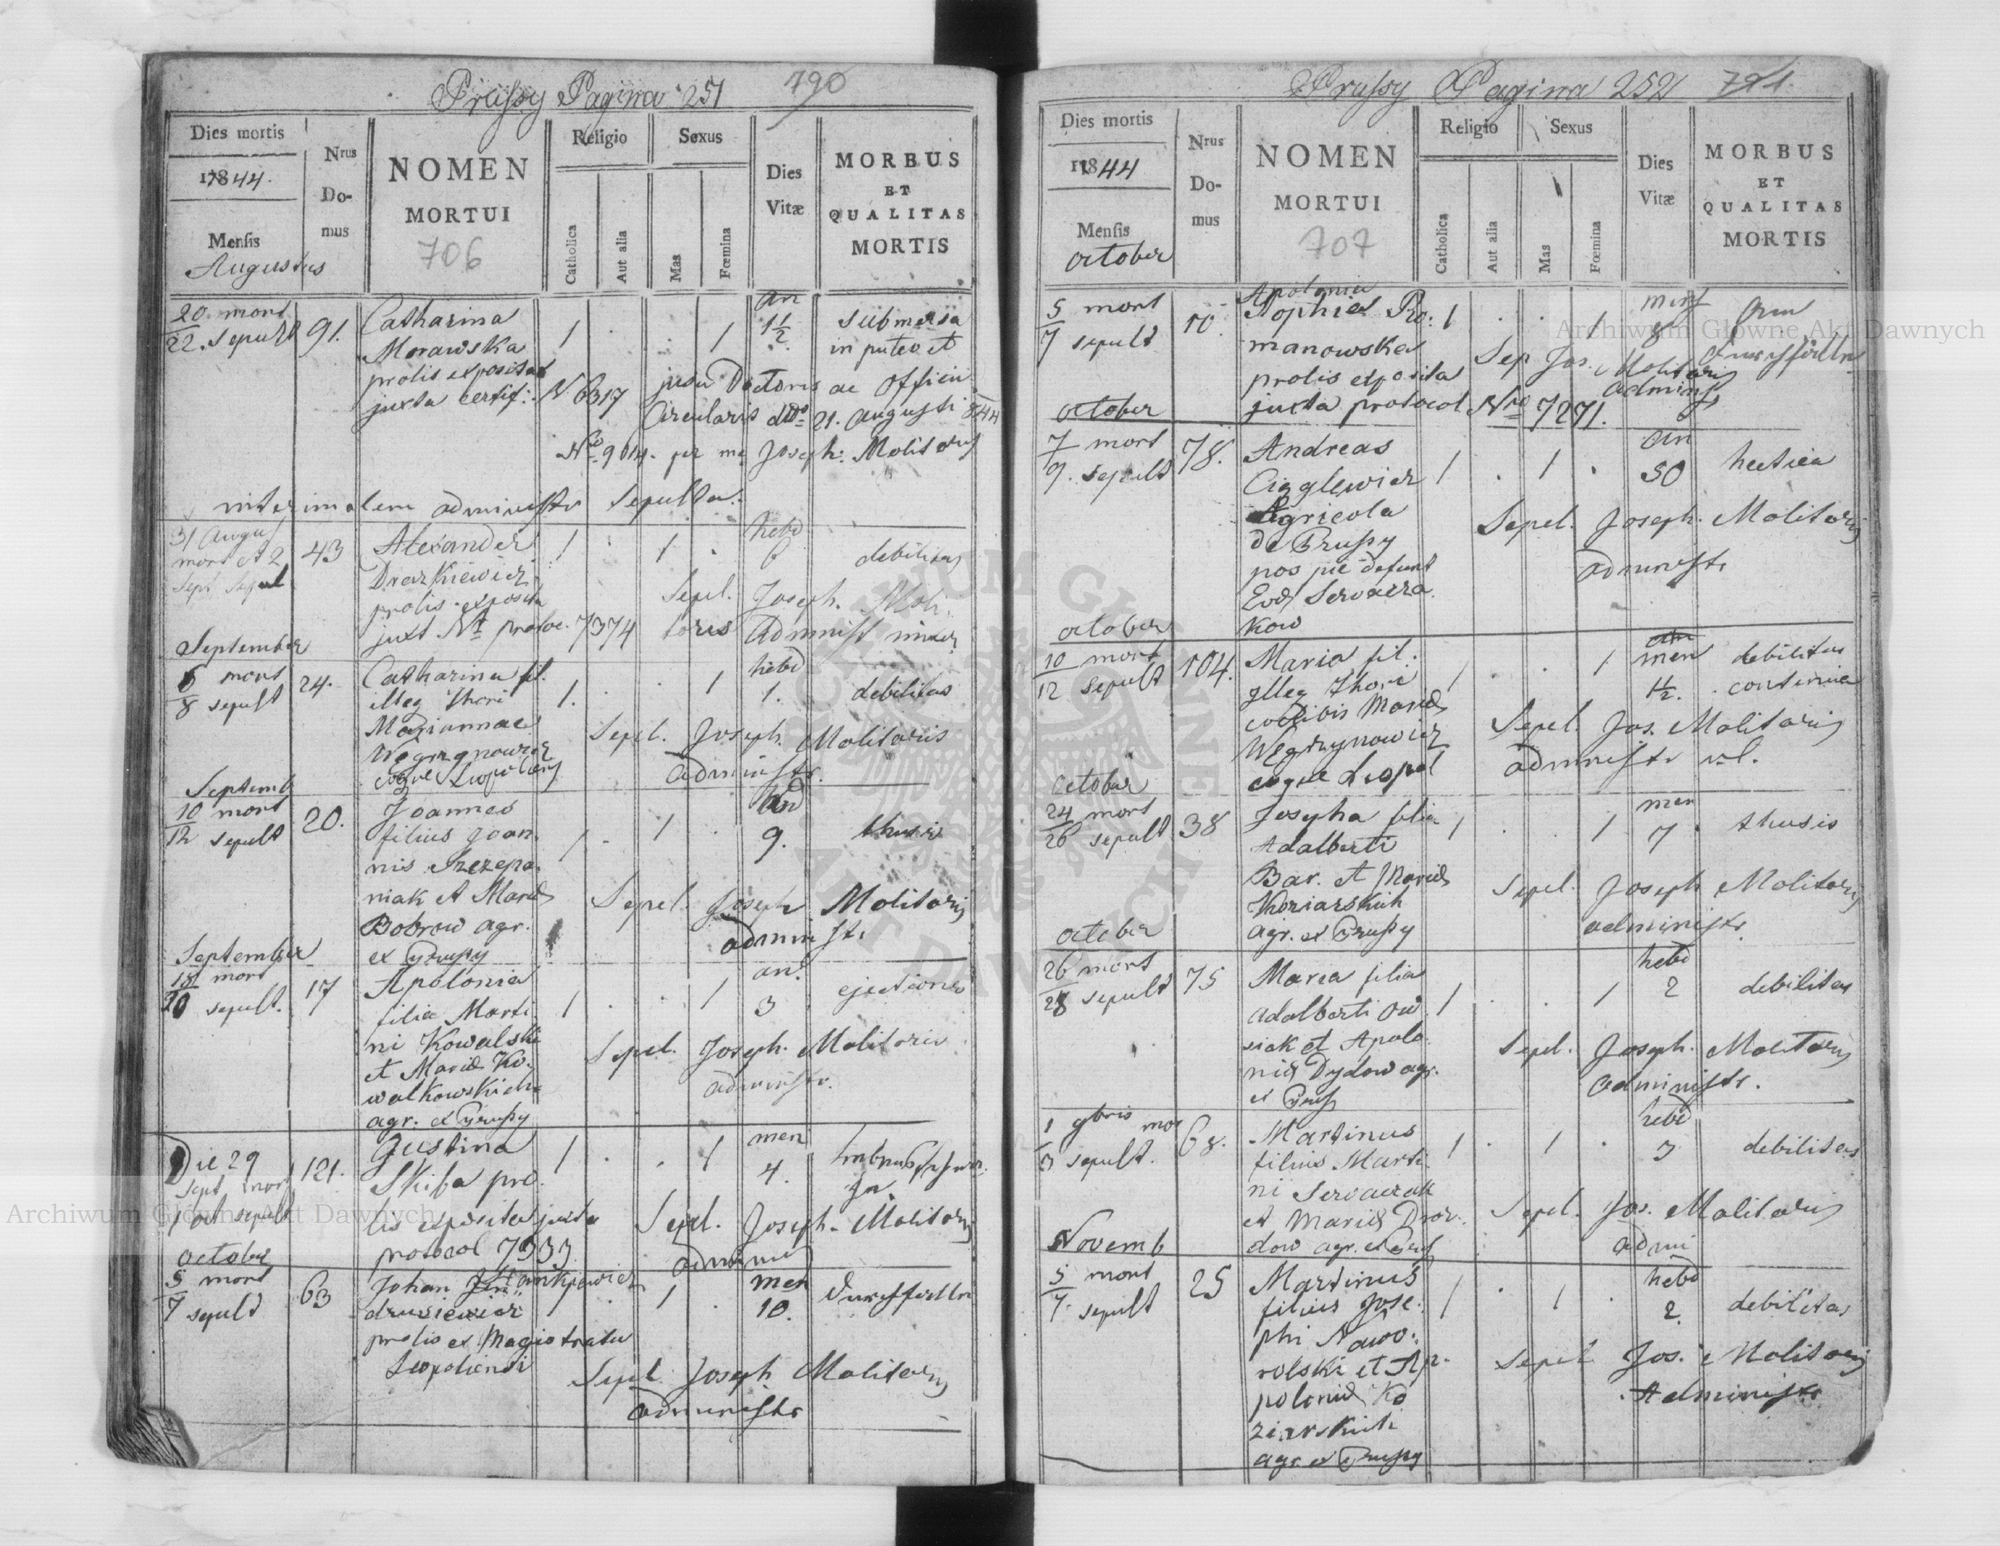 Prussy Pagina 251 790
Dies mortis
1844.
Mensis
Augustus
Nrus
Do-
mus
NOMEN
MORTUI
706
Religio
Catholica
Aut alia
Sexus
Mas
Fœmina
Dies
Vitæ
MORBUS
ET
QUALITAS
MORTIS
20 mort
22. sepult 91. Catharina 1 . . 1 an 1½ submersa
Morawska in puteo et
prolis exposita jussu Doctoris ac Officii
juxta certif: N 6317 Circularis ddo 21. Augusti 844
No 9614. per me Joseph: Molitoris
interimalem administr sepulta.
31 Augu
mort et 2
Sept sepul 43 Alexander 1 . 1 . hebd 6 debilitas
Drazkiewicz
prolis exposita Sepel. Joseph. Moli
juxt Nr protoc. 7374 toris Administ inter
September
6 mort
8 sepult 24. Catharina fil. 1. . . 1 hebd 1. debilitas
illeg thori
Mariannae Sepel. Joseph. Molitoris
Węgrzynowicz administr.
Septemb
10 mort
12 sepult 20. Joannes . 1 . 9. thusis
filius Joan
nis Szczepa
niak et Mariæ Sepel. Joseph Molitoris
Bobrow agr. administr
ex Prussy
September
18 mort
20 sepult. 17 Apolonia 1 . . 1 an. 3
filia Marti
ni Kowalski
et Mariæ Ko Sepel. Joseph. Molitoris
walkowskich administr.
agr. ex Prussy
Die 29
Sept mort
1 oct sepult 121. Justina 1 . . 1 men 4.
Skiba pro
lis exposita juxta Sepel. Joseph. Molitoris
protocol 7333 admini
October
5 mort
7 sepult 63 Johan 1 . 1 . men 10.
prolis ex Magistratu
Leopoliensi
Sepel Joseph Molitoris
administr
Prussy Pagina 252 791.
Dies mortis
1844
Mensis
october
Nrus
Do-
mus
NOMEN
MORTUI
707
Religio
Catholica
Aut alia
Sexus
Mas
Fœmina
Dies
Vitæ
MORBUS
ET
QUALITAS
MORTIS
5 mort
7 sepult 10. Apolonia
Sophia Ro: 1 . . 1 mens 8
manowska Sep Jos. Molitoris
prolis exposita administ
juxta protocol Nro 7271.
october
7 mort
9. sepult 78. Andreas 1 . 1 . an 50 hectica
Cigglewicz
Agricola Sepel. Joseph. Molitoris
de Prussy administr
pos pie defunt
Eva Servacza
kow
october
10 mort
12 sepult 104. Maria fil. 1 . . 1 men 1½. debilitas
illeg thori continua
coelibis Mariæ Sepel. Jos. Molitoris
Węgrzynowicz administr
october
24 mort
26 sepult 38 Josepha filia 1 . . 1 men 7 thusis
Adalberti
Bar. et Mariæ Sepel. Joseph Molitoris
Koziarskich administr.
agr. ex Prussy
october
26 mort
28 sepult 75 Maria filia 1 . . 1 hebd 2 debilitas
Adalberti Ow
siak et Apolo Sepel. Joseph. Molitoris
niæ Dydow agr. administr.
ex Pruss
1 9bris mor
3 sepult. 68. Martinus 1 . 1 . hebd 3 debilitas
filius Marti
ni Servaczak Sepel. Jos. Molitoris
et Mariæ Droz admi
dow agr. ex Pruss
Novemb
5 mort
7. sepult 25 Martinus 1 . 1 . hebd 2 debilitas
filius Jose
phi Nawo
rolski et Ap. Sepel Jos. Molitoris
poloniæ Ko Administr
ziarskich
agr ex Prussy
Archiwum Główne Akt Dawnych
Archiwum Główne Akt Dawnych
ARCHIWUM GŁÓWNE AKT DAWNYCH